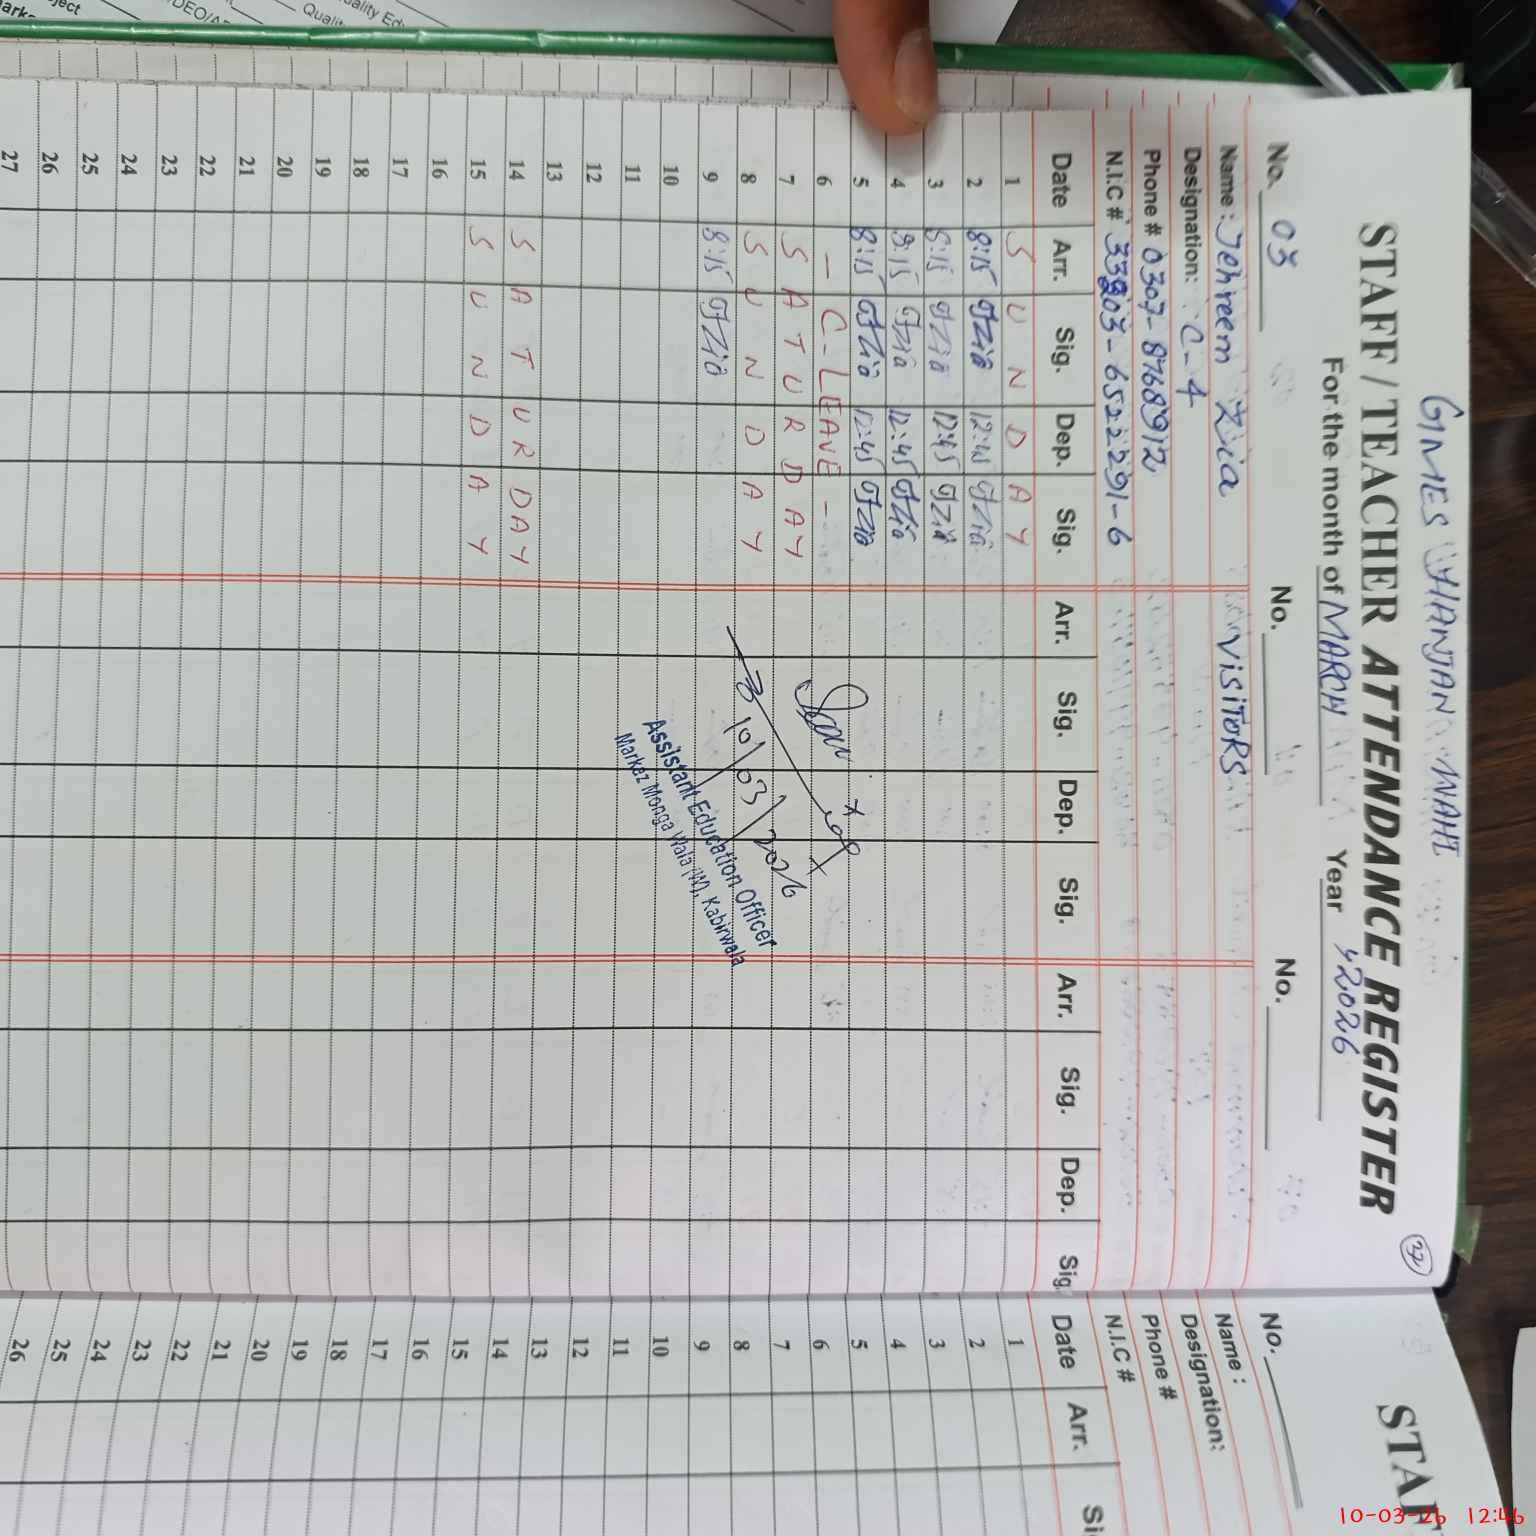 GMES JHANJAN WAHI
STAFF / TEACHER ATTENDANCE REGISTER
32
For the month of MARCH Year 2026
No. 03 No. No.
Name : Tehreem Zia VISITORS
Designation: C-4
Phone # 0307-8768912
N.I.C # 33203-6522291-6
Date Arr. Sig. Dep. Sig. Arr. Sig. Dep. Sig. Arr. Sig. Dep. Sig.
1 S U N D A Y
2 8:15 TZia 12:45 TZia
3 8:15 TZia 12:45 TZia
4 8:15 TZia 12:45 TZia
5 8:15 TZia 12:45 TZia
6 - C-LEAVE -
7 S A T U R D A Y
8 S U N D A Y
9 8:15 TZia
10
11
12
13
14 S A T U R D A Y
15 S U N D A Y
16
17
18
19
20
21
22
23
24
25
26
27
10/03/2026
Assistant Education Officer
Markaz Monga Wala (W), Kabirwala
STAF
No.
Name :
Designation:
Phone #
N.I.C #
Date Arr. Si
1
2
3
4
5
6
7
8
9
10
11
12
13
14
15
16
17
18
19
20
21
22
23
24
25
26
10-03-26 12:46